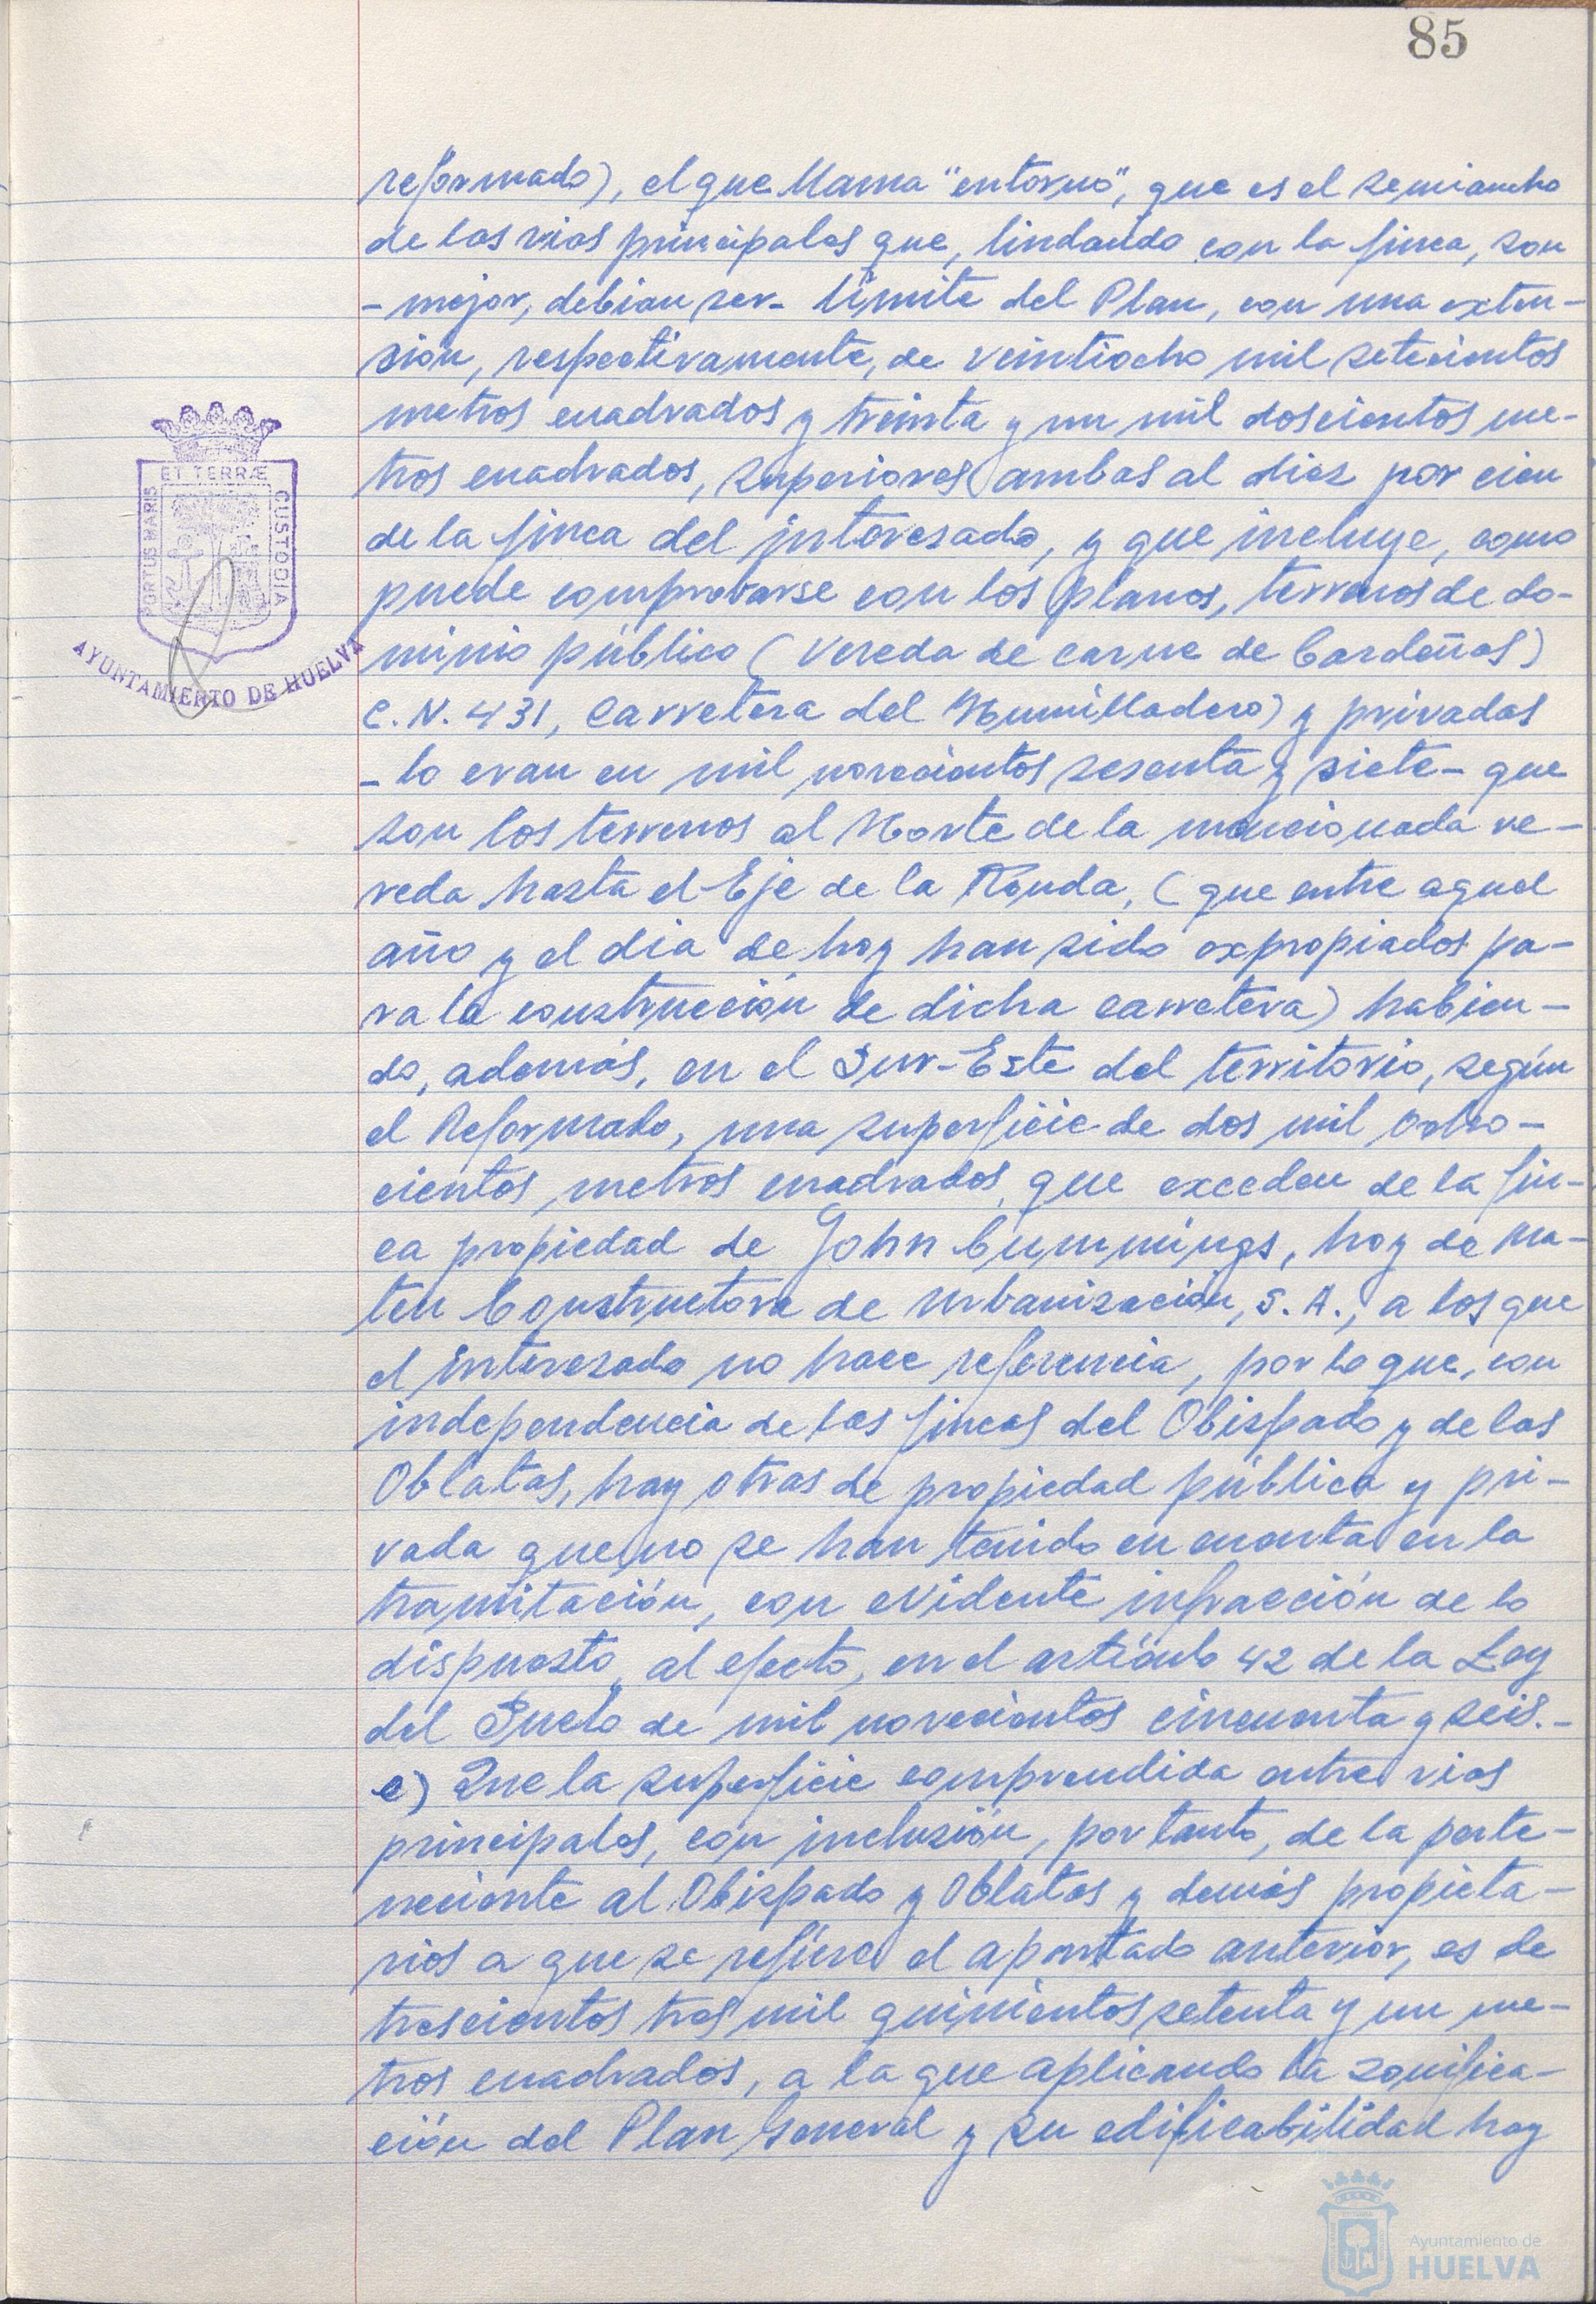 85
reformado), el que llama "entorno", que es el semiancho
de las vias principales que, lindando con la finca, son
- mejor, debian ser- límite del Plan, con una exten-
sión, respectivamente, de veintiocho mil setecientos
metros cuadrados y treinta y un mil doscientos me-
tros cuadrados, superiores ambas al diez por cien
de la finca del interesado, y que incluye, como
puede comprobarse con los planos, terrenos de do-
minio público (Vereda de carne de Cardeñas)
C.N. 431, Carretera del Humilladero) y privados
- lo eran en mil novecientos sesenta y siete- que
son los terrenos al Norte de la mencionada ve-
reda hasta el Eje de la Ronda, (que entre aquel
año y el dia de hoy han sido expropiados pa-
ra la construcción de dicha carretera) habien-
do, además, en el Sur-Este del territorio, según
el Reformado, una superficie de dos mil ocho-
cientos metros cuadrados que exceden de la fin-
ca propiedad de John Cummings, hoy de Ma-
ten Constructora de Urbanización, S.A., a los que
el interesado no hace referencia, por lo que, con
independencia de las fincas del Obispado y de las
Oblatas, hay otras de propiedad pública y pri-
vada que no se han tenido en cuenta en la
tramitación, con evidente infracción de lo
dispuesto, al efecto, en el artículo 42 de la Ley
del Suelo de mil novecientos cincuenta y seis.-
e) Que la superficie comprendida entre vias
principales, con inclusión, por tanto, de la perte-
neciente al Obispado y Oblatas y demás propieta-
rios a que se refiere el apartado anterior, es de
trescientos tres mil quinientos setenta y un me-
tros cuadrados, a la que aplicando la zonifica-
ción del Plan General y su edificabilidad hay
PORTUS MARIS ET TERRÆ CUSTODIA
AYUNTAMIENTO DE HUELVA
Ayuntamiento de
HUELVA